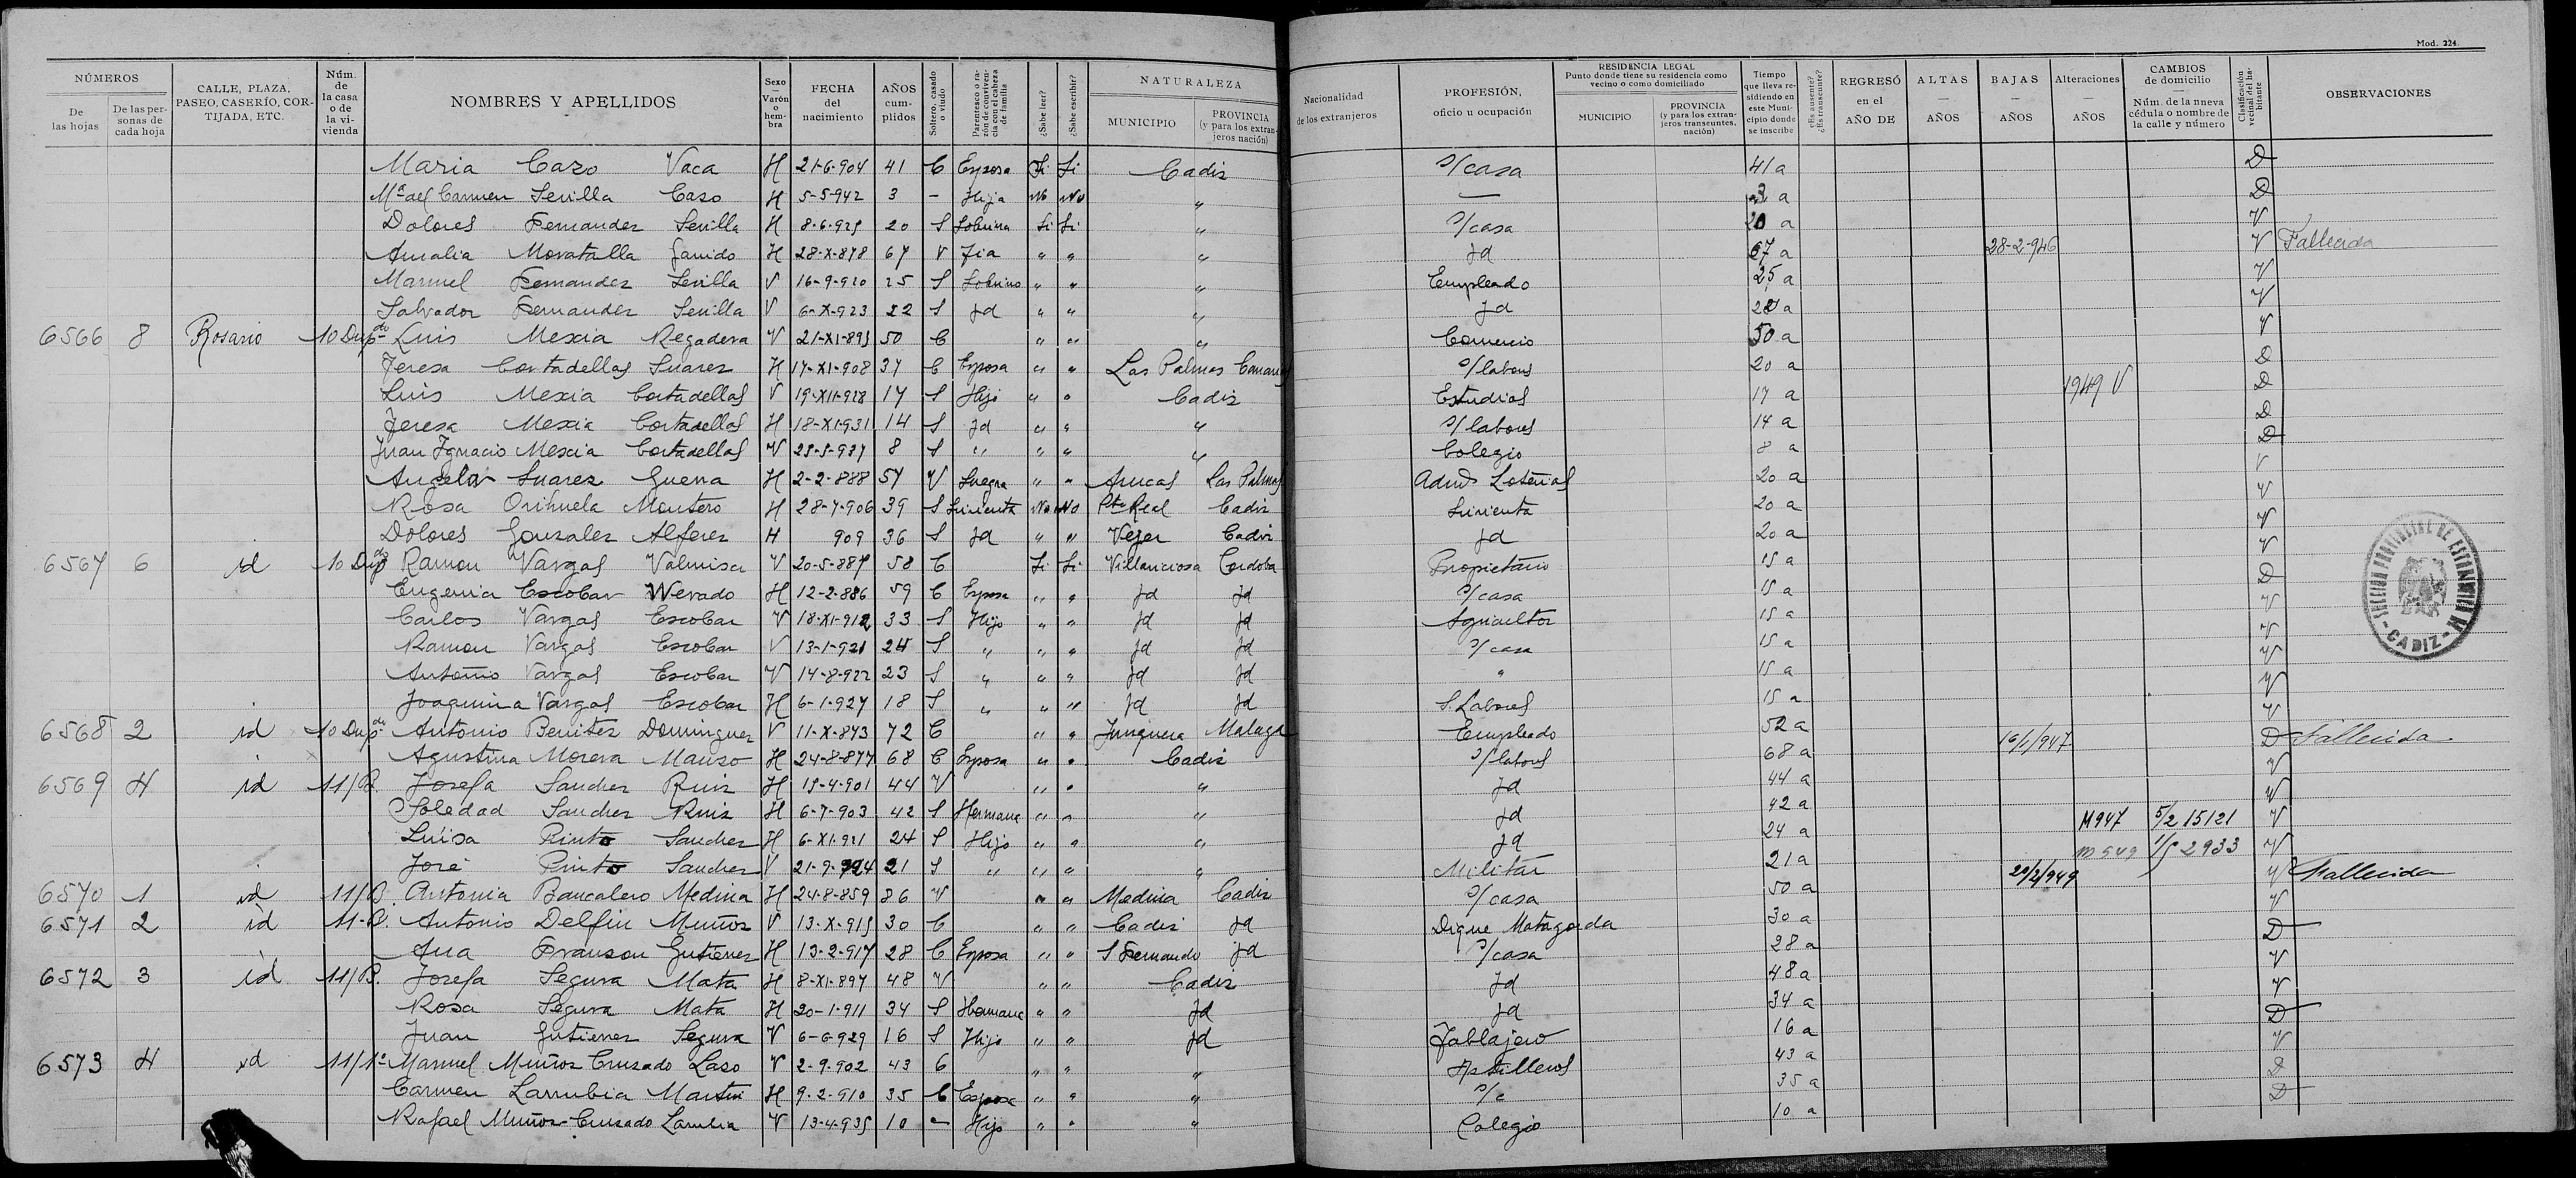 Mod. 224.
NÚMEROS
De las hojas
De las personas de cada hoja
CALLE, PLAZA, PASEO, CASERÍO, CORTIJADA, ETC.
Núm. de la casa o de la vivienda
NOMBRES Y APELLIDOS
Sexo — Varón o hembra
FECHA del nacimiento
AÑOS cumplidos
Soltero, casado o viudo
Parentesco o razón de convivencia con el cabeza de familia
¿Sabe leer?
¿Sabe escribir?
NATURALEZA
MUNICIPIO
PROVINCIA (y para los extranjeros nación)
Nacionalidad de los extranjeros
PROFESIÓN, oficio u ocupación
RESIDENCIA LEGAL
Punto donde tiene su residencia como vecino o como domiciliado
MUNICIPIO
PROVINCIA (y para los extranjeros transeuntes, nación)
Tiempo que lleva residiendo en este Municipio donde se inscribe
¿Es ausente? ¿Es transeunte?
REGRESÓ en el AÑO DE
ALTAS — AÑOS
BAJAS — AÑOS
Alteraciones — AÑOS
CAMBIOS de domicilio — Núm. de la nueva cédula o nombre de la calle y número
Clasificación vecinal del habitante
OBSERVACIONES
Maria Cazo Vaca H 21-6-904 41 C Esposa Si Si Cadiz S/casa 41 a D
Mª del Carmen Sevilla Caso H 5-5-942 3 - Hija No No " — 3 a D
Dolores Fernandez Sevilla H 8-6-925 20 S Sobrina Si Si " S/casa 20 a V
Amalia Moratalla Garrido H 28-X-878 67 V Tia " " " Id 67 a 28-2-946 V Fallecida
Manuel Fernandez Sevilla V 16-9-920 25 S Sobrino " " " Empleado 25 a V
Salvador Fernandez Sevilla V 6-X-923 22 S Id " " " Id 22 a V
6566 8 Rosario 10 Dupdo Luis Mexia Regadera V 21-XI-895 50 C " " " Comercio 50 a V
Teresa Cortadellas Suarez H 17-XI-908 37 C Esposa " " Las Palmas Canarias S/labores 20 a D
Luis Mexia Cortadellas V 19-XII-928 17 S Hijo " " Cadiz Estudios 17 a 1949 V D
Teresa Mexia Cortadellas H 18-XI-931 14 S Id " " " S/labores 14 a D
Juan Ignacio Mexia Cortadellas V 23-5-937 8 S " " " " Colegio 8 a D
Angela Suarez Guerra H 2-2-888 57 V Suegra " " Arucas Las Palmas Admr Loterias 20 a V
Rosa Orihuela Montero H 28-7-906 39 S Sirvienta No No Pto Real Cadiz Sirvienta 20 a V
Dolores Gonzalez Alferez H 909 36 S Id " " Vejer Cadiz Id 20 a V
6567 6 id 10 Dupdo Ramon Vargas Valmisa V 20-5-887 58 C Si Si Villaviciosa Cordoba Propietario 15 a V
Eugenia Escobar Nevado H 12-2-886 59 C Esposa " " Id Id S/casa 15 a D
Carlos Vargas Escobar V 18-XI-912 33 S Hijo " " Id Id Agricultor 15 a V
Ramon Vargas Escobar V 13-1-921 24 S " " " Id Id S/casa 15 a V
Antonio Vargas Escobar V 14-8-922 23 S " " " Id Id " 15 a V
Joaquina Vargas Escobar H 6-1-927 18 S " " " Id Id S. Labores 15 a V
6568 2 id 10 Dupdo Antonio Benitez Dominguez V 11-X-873 72 C " " Junquera Malaga Empleado 52 a V
Agustina Morera Manso H 24-8-877 68 C Esposa " " Cadiz S/labores 68 a 16/1/947 D Fallecida
6569 4 id 11/B. Josefa Sanchez Ruiz H 15-4-901 44 V " " " Id 44 a V
Soledad Sanchez Ruiz H 6-7-903 42 S Hermana " " " Id 42 a V
Luisa Pinto Sanchez H 6-XI-921 24 S Hijo " " " Id 24 a M 947 5/2 15121 V
José Pinto Sanchez V 21-9-924 21 S " " " " Militar 21 a M 949 1/5 2933 V
6570 1 id 11/B. Antonia Bancalero Medina H 24-8-859 86 V " " Medina Cadiz S/casa 50 a 20/2/949 V Fallecida
6571 2 id 11-B. Antonio Delfin Muñoz V 13-X-915 30 C " " Cadiz Id Dique Matagorda 30 a V
Ana Gutierrez H 13-2-917 28 C Esposa " " S Fernando Id S/casa 28 a D
6572 3 id 11/B. Josefa Segura Mata H 8-XI-897 48 V " " Cadiz Id 48 a V
Rosa Segura Mata H 20-1-911 34 S Hermana " " Id Id 34 a V
Juan Gutierrez Segura V 6-6-929 16 S Hijo " " Id Tablajero 16 a D
6573 4 id 11/1º Manuel Muñoz Cruzado Laso V 2-9-902 43 C " " " Astilleros 43 a V
Carmen Larrubia Martin H 9-2-910 35 C Esposa " " " S/c 35 a D
Rafael Muñoz-Cruzado Larrubia V 13-4-935 10 - Hijo " " " Colegio 10 a D
SECCION PROVINCIAL DE ESTADISTICA
- CADIZ -